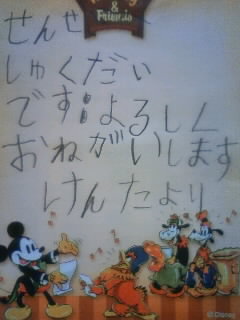 & Friends
せんせ
しゅくだい
です。よろしく
おねがいします
けんたより
© Disney